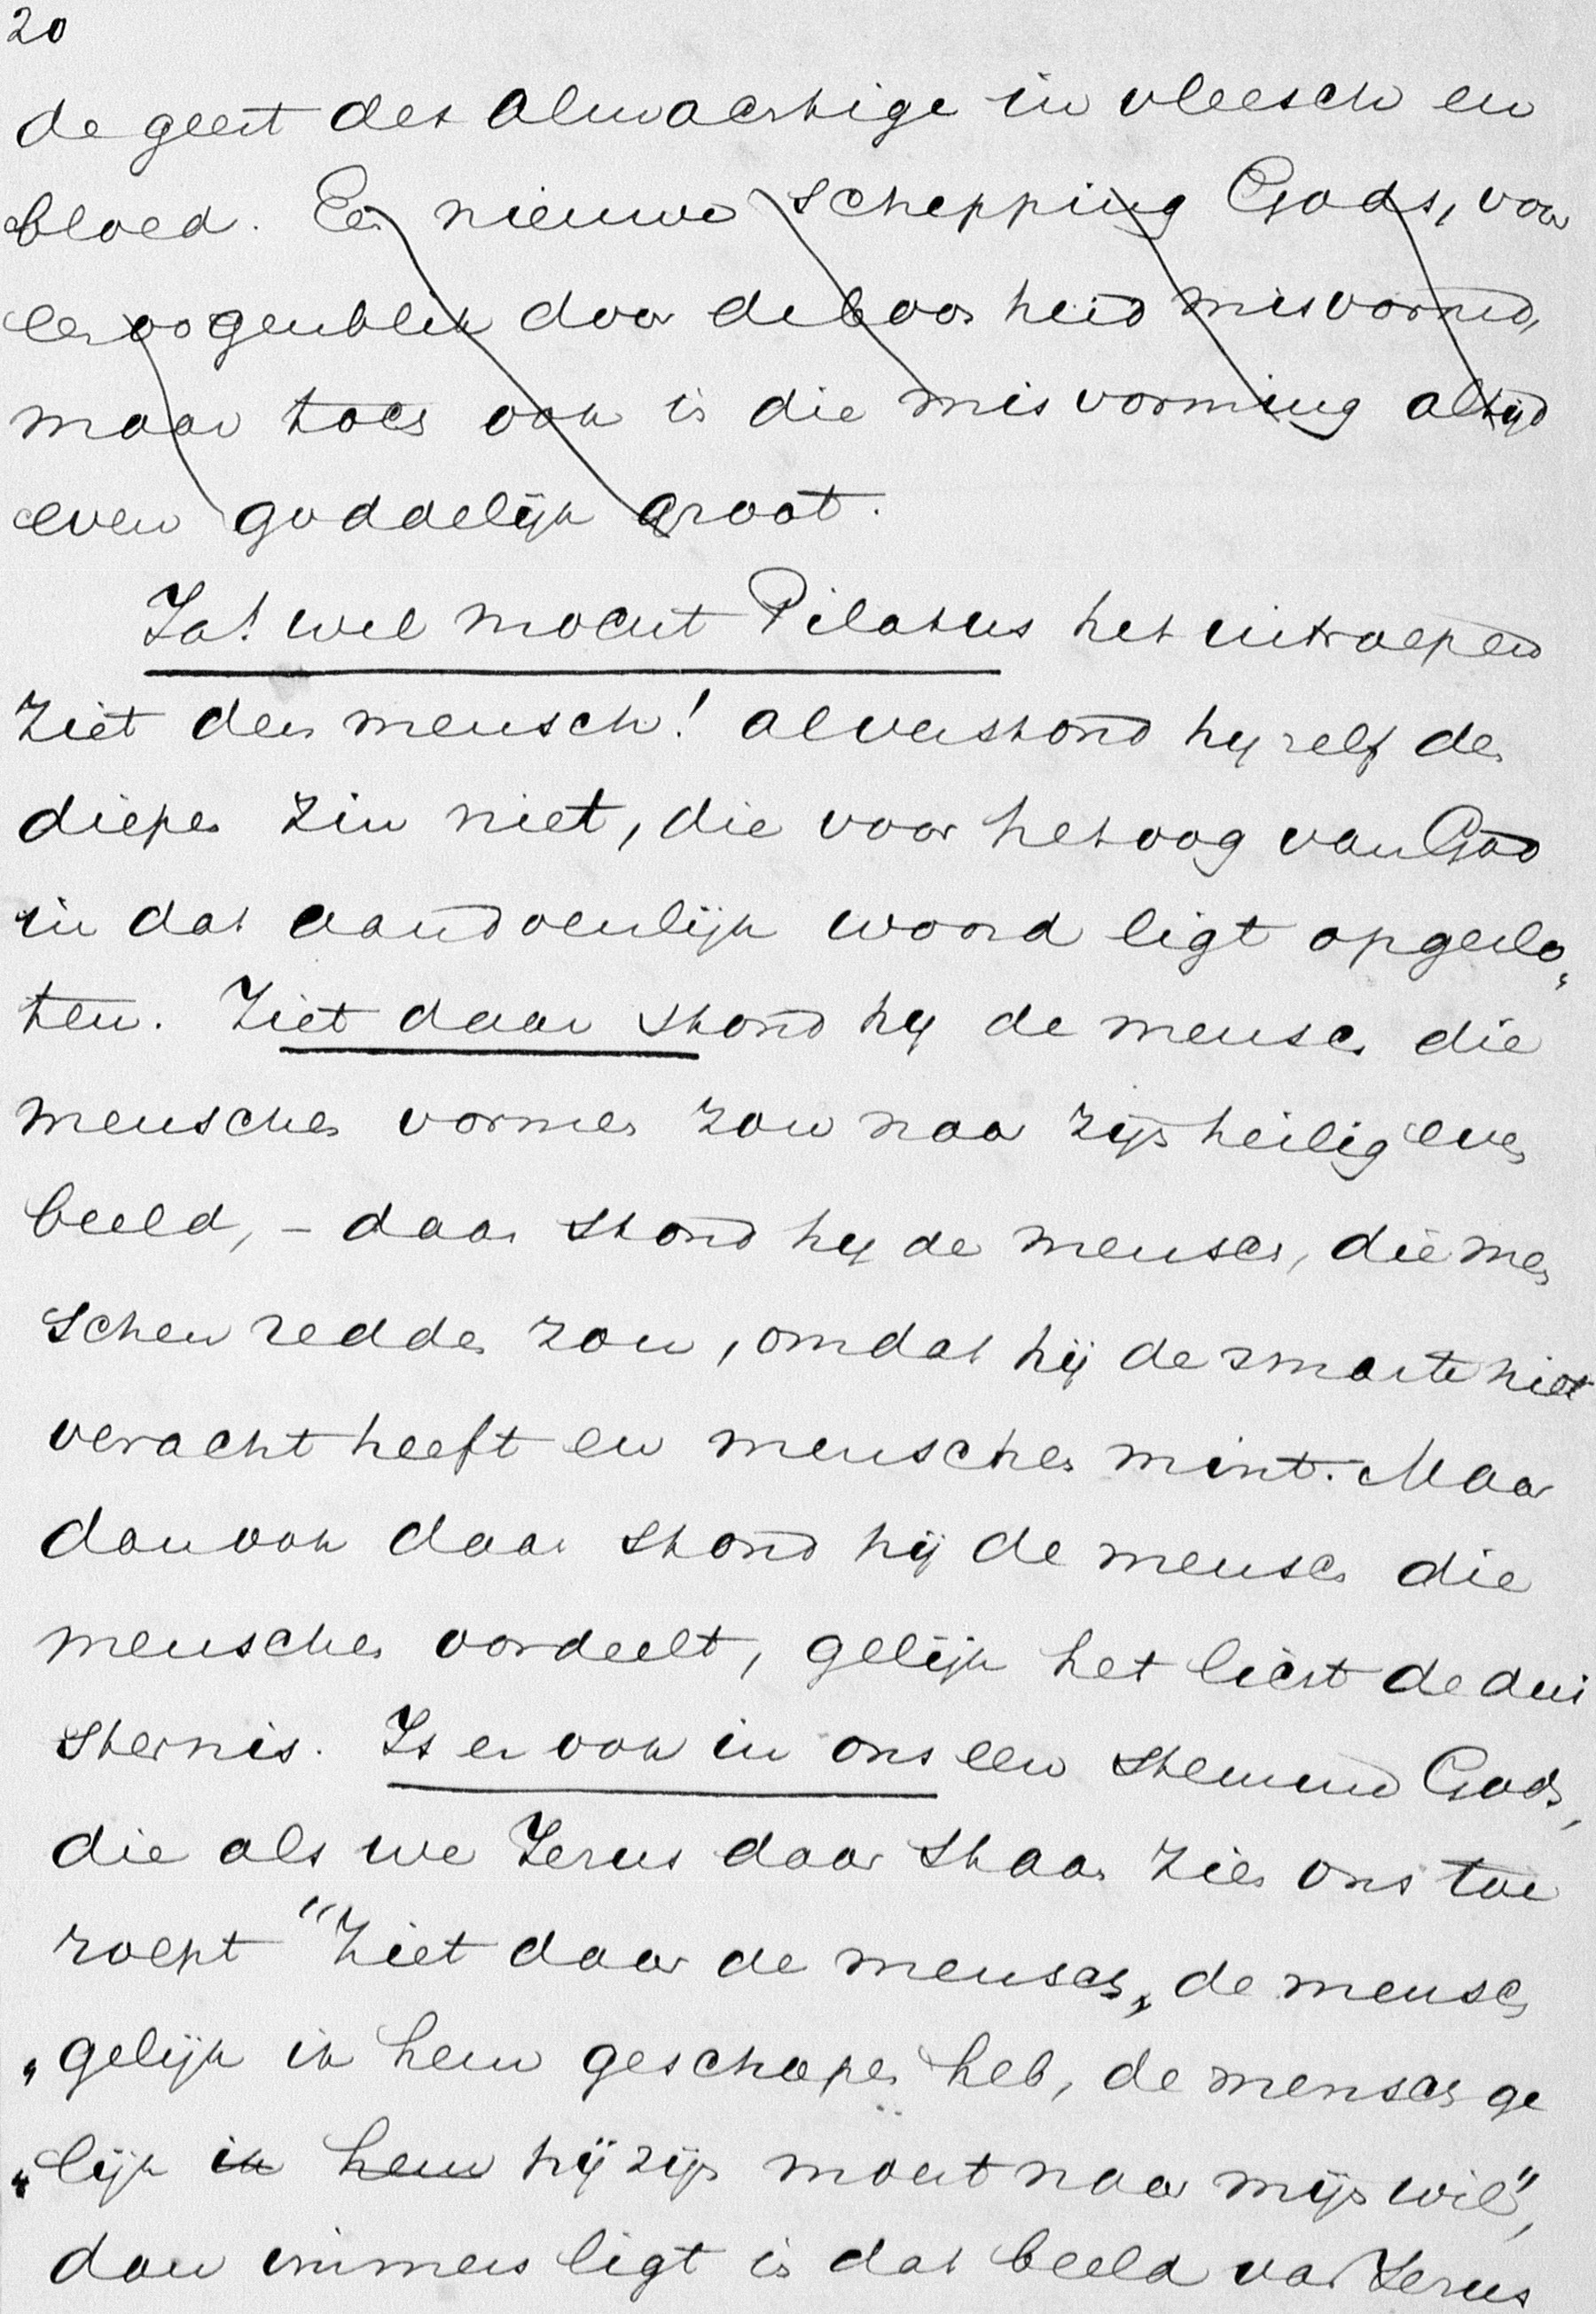 20
de geest des Almachtige in vleesch en
bloed. Een nieuwe schepping Gods, voor
een oogenblik door de boosheid misvormd,
maar toch ook in die misvorming altijd
even goddelijk groot.
Ja! wel mocht Pilatus het uitroepen
Ziet den mensch! al verstond hij zelf den
diepen zin niet, die voor het oog van God
in dat aandoenlijk woord ligt opgeslo„
ten. Ziet daar stond hij de mensch die
menschen vormen zou naar zijn heilig even
beeld, – daar stond hij de mensch, die men
schen redden zou, omdat hij de smarte niet
veracht heeft en menschen mint. Maar
dan ook daar stond hij de mensch die
menschen oordeelt, gelijk het licht de dui
sternis. Is er ook in ons een stemme Gods,
die als we Jezus daar staan zien ons toe
roept "Ziet daar de mensch, de mensch
„gelijk ik hem geschapen heb, de mensch ge
„lijk ik hem hij zijn moet naar mijn wil",
dan immers ligt in dat beeld van Jezus